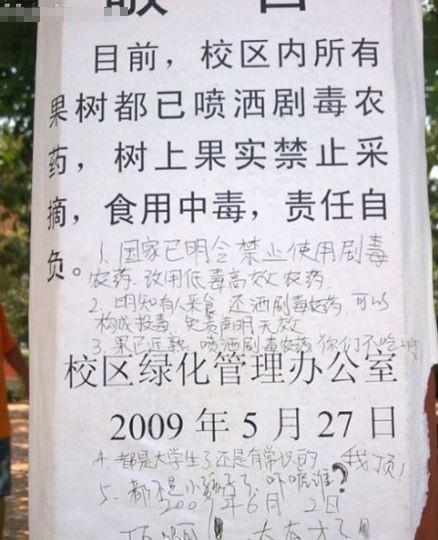 目前，校区内所有
果树都已喷洒剧毒农
药，树上果实禁止采
摘，食用中毒，责任自
负。
1. 国家已明令禁止使用剧毒
农药. 改用低毒高效农药.
2. 明知有人采食, 还洒剧毒农药. 可以
构成投毒. 免责声明无效
3. 果已近熟. 喷洒剧毒农药你们不吃啊
校区绿化管理办公室
2009 年 5 月 27 日
4. 都是大学生了还是有常识的 我顶!
5. 都不是小孩子了, 吓唬谁?
2009年6月2日